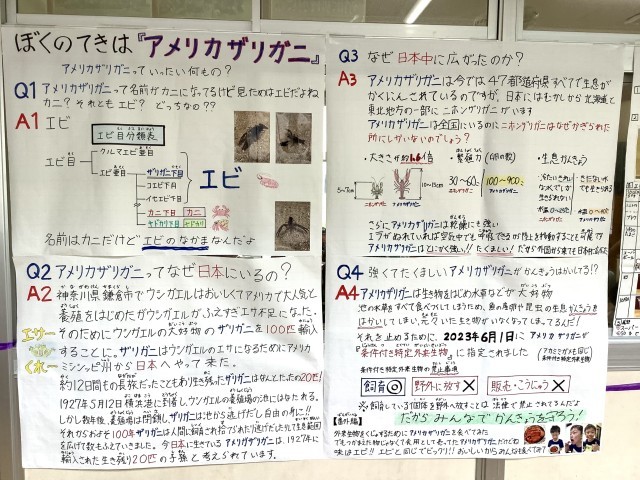 ぼくのてきは『アメリカザリガニ』
アメリカザリガニっていったい何もの?
Q1 アメリカザリガニって名前がカニになってるけど見ためはエビだよね
カニ?それともエビ? どっちなの??
A1 エビ
エビ目分類表
エビ目
クルマエビ亜目
エビ亜目
ザリガニ下目
コエビ下目
イセエビ下目
カニ下目 カニ
ヤドカリ下目 ヤドカリ
エビ
名前はカニだけどエビのなかまなんだよ
Q2 アメリカザリガニってなぜ日本にいるの?
A2 神奈川県鎌倉市でウシガエルはおいしくてアメリカで大人気と
養殖をはじめたがウシガエルがふえすぎエサ不足になった。
エサー
そのためにウシガエルの大好物のザリガニを100匹輸入
することに。ザリガニはウシガエルのエサになるためにアメリカ
くれー
ミシシッピ州から日本へやって来た。
約12日間もの長旅だったこともあり生き残ったザリガニはなんとたったの20匹!
1927年5月12日横浜港に到着しウシガエルの養殖場の池にはなたれる。
しかし数年後、養殖場は閉鎖しザリガニは池から逃げだし自由の身に!!
それからおよそ100年ザリガニは人間に飼育され捨てられたり逃げだしたりして生息範囲
を広げて数もふえていきました。今日本に生きているアメリカザリガニは、1927年に
輸入された生き残り20匹の子孫と考えられています。
Q3 なぜ日本中に広がったのか?
A3 アメリカザリガニは今では47都道府県すべてで生息が
かくにんされているのですが、日本にはむかしから北海道と
東北地方の一部にニホンザリガニがいます
アメリカザリガニは全国にいるのにニホンザリガニはなぜかぎられた
所にしかいないのでしょう?
・大きさ 約1.6倍
・繁殖力(卵の数)
・生息かんきょう
5~7cm
10~15cm
30~60こ
100~900こ
さらにアメリカザリガニは乾燥にも強い
エラがぬれていれば空気中でも呼吸できるから陸上を移動することも可能です
アメリカザリガニはとにかく強い!!たくましい!だから外国から来ても日本中に
Q4 強くてたくましいアメリカザリガニがかんきょうはかいしてる!?
A4 アメリカザリガニは生物をはじめ水草などが大好物
池の水草をすべて食べつくしてしまうため、魚の産卵や昆虫の生息かんきょうを
はかいしてしまい、元々いた生き物がいなくなってしまってるんだ!
それを止めるために、2023年6月1日にアメリカザリガニは
『条件付き特定外来生物』に指定されました
(アカミミガメも同じ条件付特定外来生物)
条件付き特定外来生物の禁止事項
飼育◎
野外に放す×
販売・こうにゅう×
※飼育している個体を野外へ放すことは法律で禁止されてるんだよ
だからみんなでかんきょうを守ろう!
【番外編】
外来生物をくじょするためにアメリカザリガニを食べてみた
味はエビ!!エビと同じでビックリ!!おいしいからみんなも食べてみて?